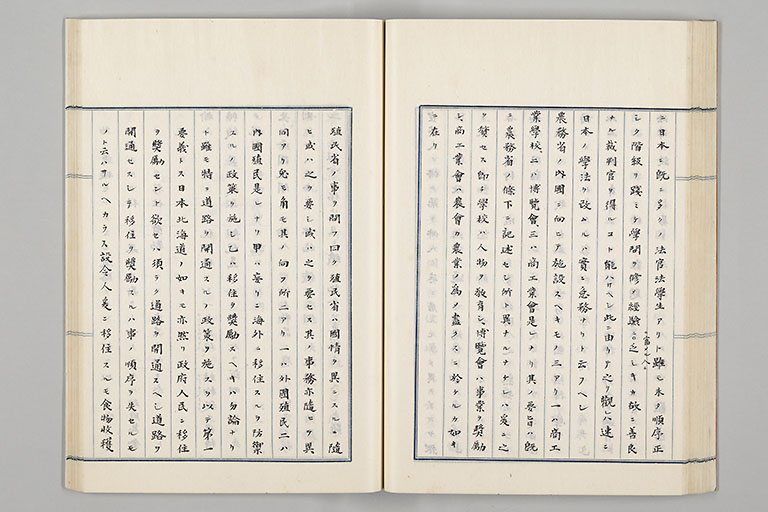 ニ日本ニ既ニ多クノ法官法學生アリト雖モ未タ順序正
シク階級ヲ踐ミテ學問ヲ修メ經驗ニ乏シキカ故ニ善良
ナル裁判官ヲ得ルコト能ハサルヘシ此ニ由リテ之ヲ觀レハ速ニ
日本ノ學法ヲ改ムルハ實ニ急務ナリト云フヘシ
農務省ノ内國ニ向ニテ施設スヘキモノ三アリ一ハ商工
業學校二ハ博覽會三ハ商工業會是レナリ其ノ要旨ハ既
ニ農務省ノ條下ニ記述セシ所ト異ナルナケレハ復ニ之
ヲ發セス即チ學校ハ人物ヲ敎育シ博覽會ハ事業ヲ奬勵
シ商工業會ハ農會カ農業ノ爲ノ盡クスニ於ケルカ如キ
ニ在リ
殖民省ノ事ヲ問フ曰ク殖民省ハ國情ヲ異ニスルニ隨
ヒ或ハ之ヲ要シ或ハ之ヲ要セス其ノ事務亦隨ヒテ異
同アリ兎ニ角モ其ノ向フ所二アリ一ハ外國殖民二ハ
内國殖民是レナリ甲ハ妄リニ海外ニ移住スルヲ防禦
スルノ政策ヲ施シ乙ハ移住ヲ奬勵スヘキハ勿論ナリ
ト雖モ特ニ道路ヲ開通スルノ政策ヲ施スヲ以テ第一
要義トス日本北海道ノ如キモ亦然リ政府人民ニ移住
ヲ奬勵セント欲セハ須ラク道路ヲ開通スヘシ道路ヲ
開通セスシテ移住ヲ奬勵スルハ事ノ順序ヲ失セルモ
ノト云ハサルヘカラス設令人爰ニ移住スルモ食物收穫